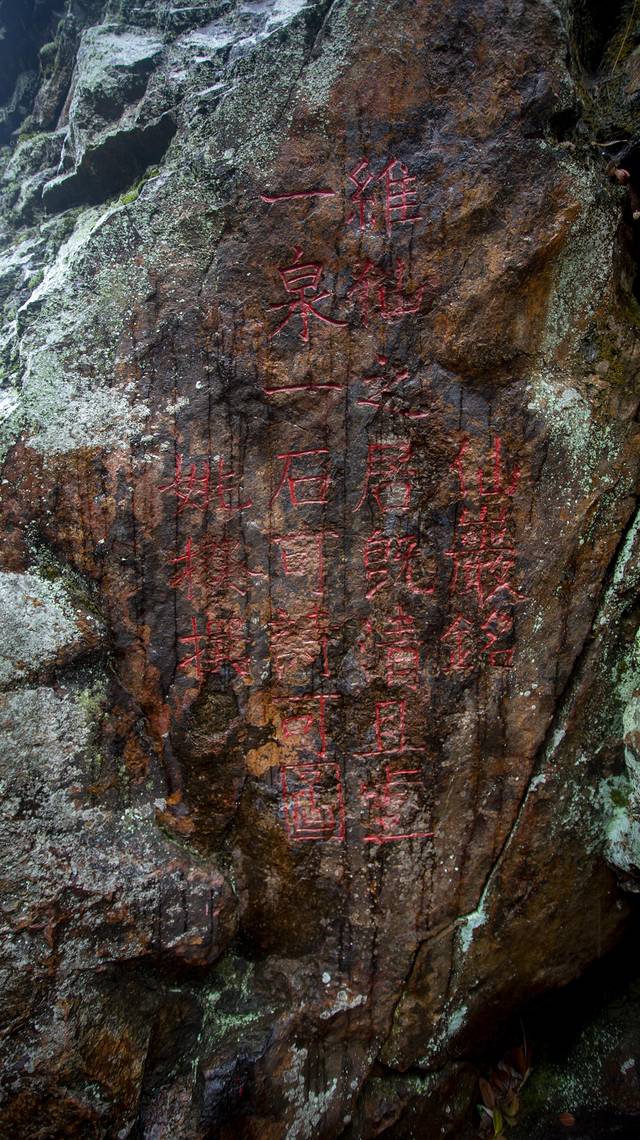 仙巖銘
維仙之居既清且虛
一泉一石可詩可圖
姚揆撰